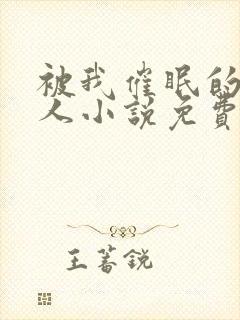 被我催眠的
人小說免費
王蓄銳